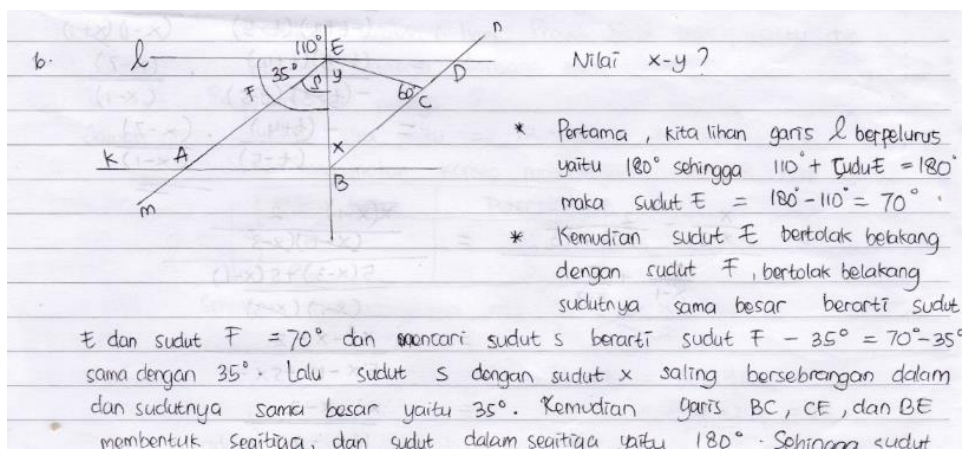 6.
l
110°
E
n
35°
S
y
F
60°
C
D
K
A
x
B
m
Nilai x-y ?
* Pertama , kita lihan garis l berpelurus
yaitu 180° sehingga 110° + sudut E = 180°
maka sudut E = 180° - 110° = 70° .
* Kemudian sudut E bertolak belakang
dengan sudut F , bertolak belakang
sudutnya sama besar berarti sudut
E dan sudut F = 70° dan mencari sudut s berarti sudut F - 35° = 70° - 35°
sama dengan 35° . Lalu sudut s dengan sudut x saling bersebrangan dalam
dan sudutnya sama besar yaitu 35° . Kemudian garis BC , CE , dan BE
membentuk segitiga, dan sudut dalam segitiga yaitu 180° . Sehingga sudut